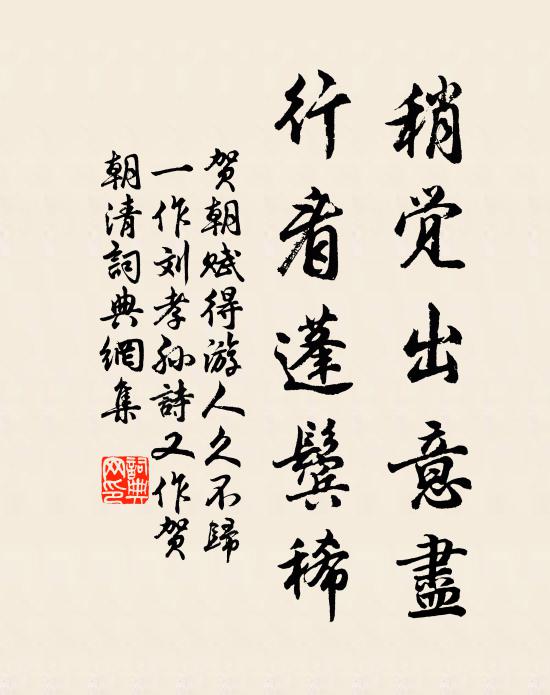 稍觉出意盡
行看蓬鬓稀
贺朝赋得游人久不歸
一作刘孝孙詩又作贺
朝清詞典網集
詞典
网印